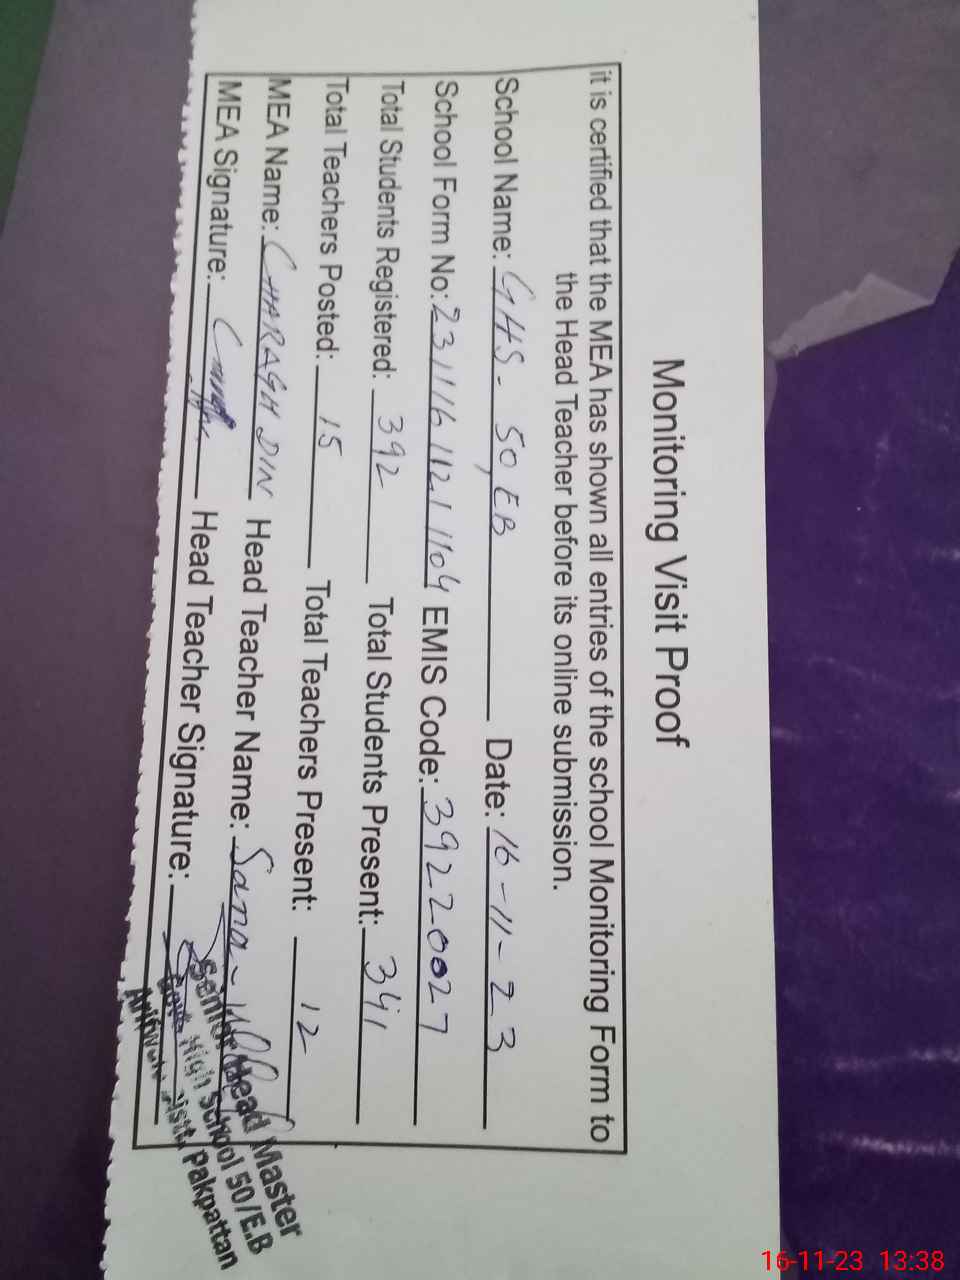 Monitoring Visit Proof
it is certified that the MEA has shown all entries of the school Monitoring Form to
the Head Teacher before its online submission.
School Name: GHS - 50, EB Date: 16-11-23
School Form No: 231116 112 1 1104 EMIS Code: 39220027
Total Students Registered: 392 Total Students Present: 341
Total Teachers Posted: 15 Total Teachers Present: 12
MEA Name: CHARAGH DIN Head Teacher Name: Sana
MEA Signature: Head Teacher Signature:
Senior Head Master
Govt. High School 50/E.B
Arifwala Distt. Pakpattan
16-11-23 13:38